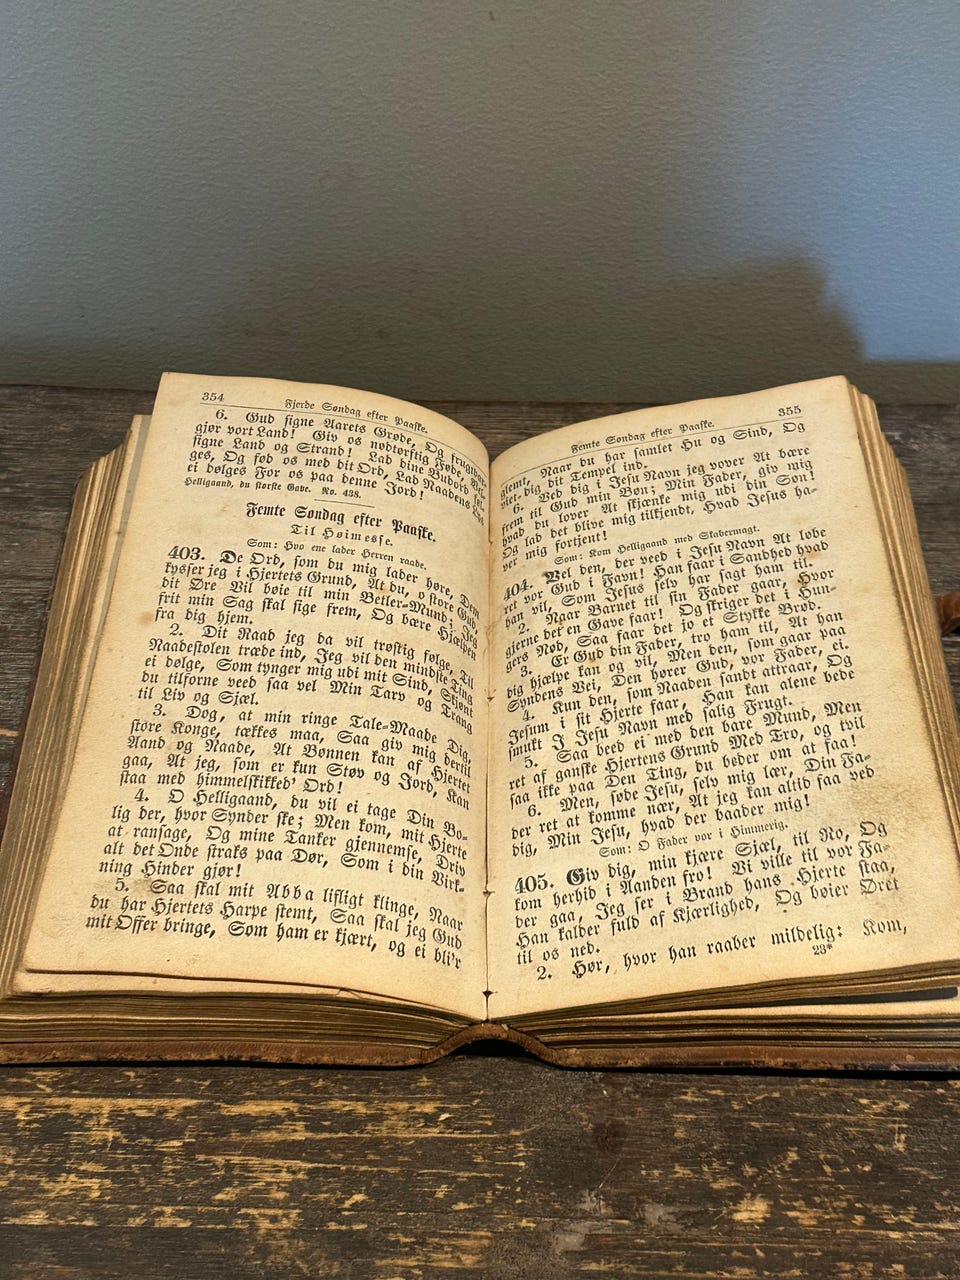 354
Fjerde Søndag efter Paaske.
6. Gud signe Aarets Grøde, Og frugtbar
gjør vort Land! Giv os nødtørftig Føde,
signe Land og Strand! Lad dine Budord
ges, Og fød os med dit Ord, Lad Naadens
ei dølges For os paa denne Jord!
Helligaand, du største Gave. No. 438.
Femte Søndag efter Paaske.
Til Høimesse.
Som: Hvo ene lader Herren raade.
403. De Ord, som du mig lader høre, Dem
kysser jeg i Hjertets Grund, At du, o store Gud,
dit Øre Vil høie til min Betler-Mund; Jeg
frit min Sag skal sige frem, Og bære Hjælpen
fra dig hjem.
2. Dit Naad jeg da vil trøstig følge, Til
Naadestolen træde ind, Jeg vil den mindste Ting
ei dølge, Som tynger mig udi mit Sind, Skjønt
du tilforne veed saa vel Min Tarv og Trang
til Liv og Sjæl.
3. Dog, at min ringe Tale-Maade Dig,
store Konge, tækkes maa, Saa giv mig dertil
Aand og Naade, At Bønnen kan af Hjertet
gaa, At jeg, som er kun Støv og Jord, Kan
staa med himmelskikked' Ord!
4. O Helligaand, du vil ei tage Din Bo-
lig der, hvor Synder ske; Men kom, mit Hjerte
at ransage, Og mine Tanker gjennemse, Driv
alt det Onde straks paa Dør, Som i din Virk-
ning Hinder gjør!
5. Saa skal mit Abba lifligt klinge, Naar
du har Hjertets Harpe stemt, Saa skal jeg Gud
mit Offer bringe, Som ham er kjært, og ei bli'r
Femte Søndag efter Paaske.
355
glemt, Naar du har samlet Hu og Sind, Og
viet dig dit Tempel ind.
6. Ved dig i Jesu Navn jeg vover At bære
frem til Gud min Bøn; Min Fader, giv mig
hvad du lover At skjænke mig udi din Søn!
Og lad det blive mig tilkjendt, Hvad Jesus ha-
ver mig fortjent!
Som: Kom Helligaand med Skabermagt.
404. Vel den, der veed i Jesu Navn At lobe
ret vor Gud i Favn! Han faar i Sandhed hvad
han vil, Som Jesus selv har sagt ham til.
2. Naar Barnet til sin Fader gaar, Hvor
gjerne det en Gave faar! Og skriger det i Hun-
gers Nød, Saa faar det jo et Stykke Brød.
3. Er Gud din Fader, tro ham til, At han
dig hjælpe kan og vil, Men den, som gaar paa
Syndens Vei, Den hører Gud, vor Fader, ei.
4. Kun den, som Naaden sandt attraar, Og
Jesum i sit Hjerte faar, Han kan alene bede
smukt I Jesu Navn med salig Frugt.
5. Saa beed ei med den bare Mund, Men
ret af ganske Hjertens Grund Med Tro, og tvil
saa ikke paa Den Ting, du beder om at faa!
6. Men, søde Jesu, selv mig lær, Din Fa-
der ret at komme nær, At jeg kan altid faa ved
dig, Min Jesu, hvad der baader mig!
Som: O Fader vor i Himmerig.
405. Giv dig, min kjære Sjæl, til Ro, Og
kom herhid i Aanden fro! Vi ville til vor Fa-
der gaa, Jeg ser i Brand hans Hjerte staa,
Han kalder fuld af Kjærlighed, Og bøier Øret
til os ned.
2. Hør, hvor han raaber mildelig: Kom,
23*